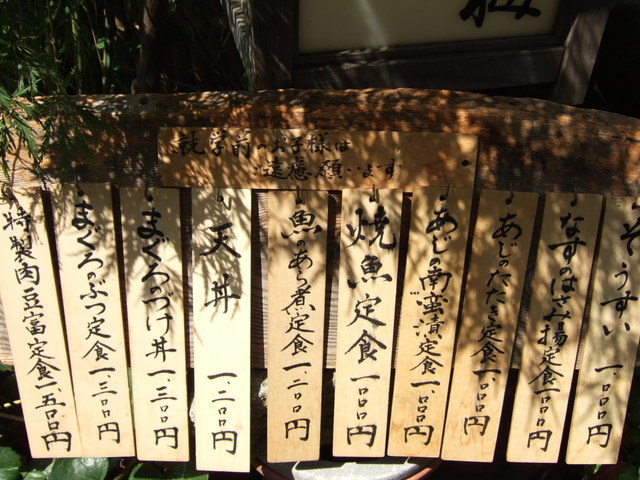 就学前のお子様は
ご遠慮願います
ぞうすい 一、〇〇〇円
なすのはさみ揚定食 一、〇〇〇円
あじのたたき定食 一、〇〇〇円
あじの南蛮漬定食 一、〇〇〇円
焼魚定食 一、〇〇〇円
魚のあら煮定食 一、二〇〇円
天丼 一、二〇〇円
まぐろのづけ丼 一、三〇〇円
まぐろのぶつ定食 一、三〇〇円
特製肉豆富定食 一、五〇〇円